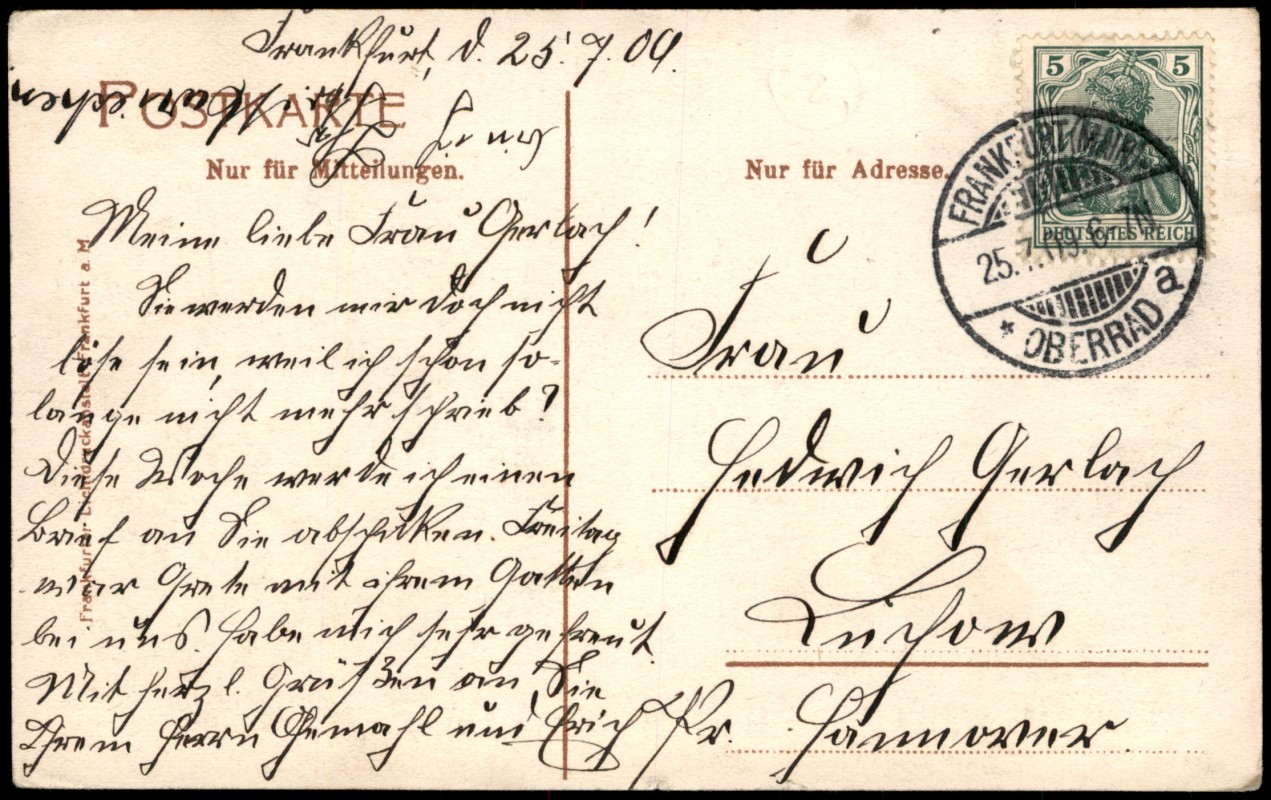 Frankfurt, d. 25.7.09.
POSTKARTE
Nur für Mitteilungen.
Meine liebe Frau Gerlach!
Sie werden mir doch nicht
böse sein, weil ich schon so-
lange nicht mehr schrieb?
Diese Woche werde ich einen
Brief an Sie abschicken. Freitag
war Grete mit ihrem Gatten
bei uns. Habe mich sehr gefreut.
Mit herzl. Grüßen an Sie
Ihrem Herrn Gemahl und Erich
Frankfurter Lichtdruckanstalt Frankfurt a. M.
Nur für Adresse.
5 5
DEUTSCHES REICH
FRANKFURT (MAIN)
25.7. 09. 6-7N
* OBERRAD a
Frau
Hedwich Gerlach
Luchow
Pr. Hannover.